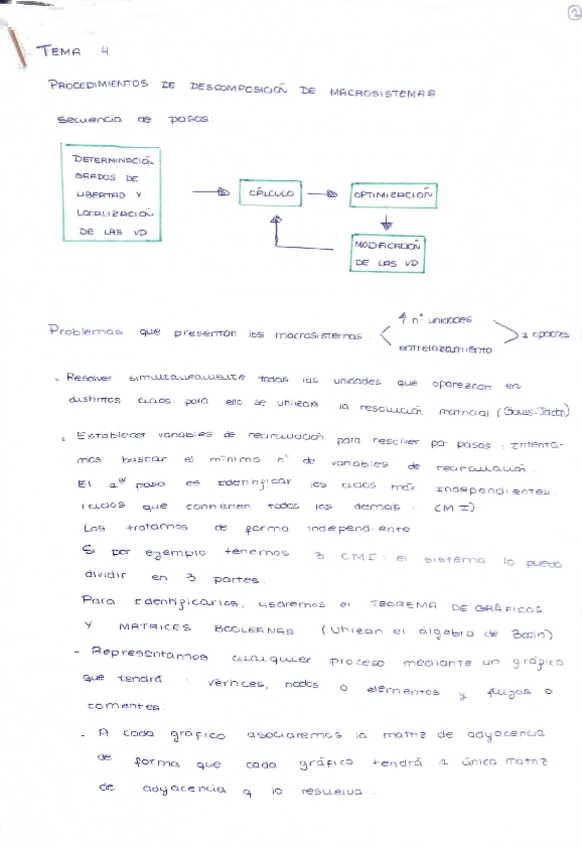 1
TEMA 4
PROCEDIMIENTOS DE DESCOMPOSICIÓN DE MACROSISTEMAS
Secuencia de pasos:
DETERMINACIÓN
GRADOS DE
LIBERTAD Y
LOCALIZACIÓN
DE LAS VD
CÁLCULO
OPTIMIZACIÓN
MODIFICACIÓN
DE LAS VD
Problemas que presentan los macrosistemas:
↑ nº unidades
entrelazamiento
2 opciones
. Resolver simultaneamente todas las unidades que aparezcan en
distintos ciclos: para ello se utilizará la resolución matricial (Gauss-Jadn)
. Establecer variables de recirculación para resolver por pasos: Intenta-
mos buscar el mínimo nº de variables de recirculación.
El 1er paso es Identificar los ciclos máx Independientes.
(ciclos que contienen todos los demás. (CMI)
Los tratamos de forma independiente
Si por ejemplo tenemos 3 CMI: el sistema lo puedo
dividir en 3 partes.
Para Identificarlos, usaremos el TEOREMA DE GRÁFICOS
Y MATRICES BOOLEANAS (Utilizan el álgebra de Boolin)
- Representamos cualquier proceso mediante un gráfico
que tendrá: vértices, nodos o elementos y flujos o
corrientes.
- A cada gráfico asociaremos la matriz de adyacencia
de forma que cada gráfico tendrá 1 única matriz
de adyacencia q lo resuelva.